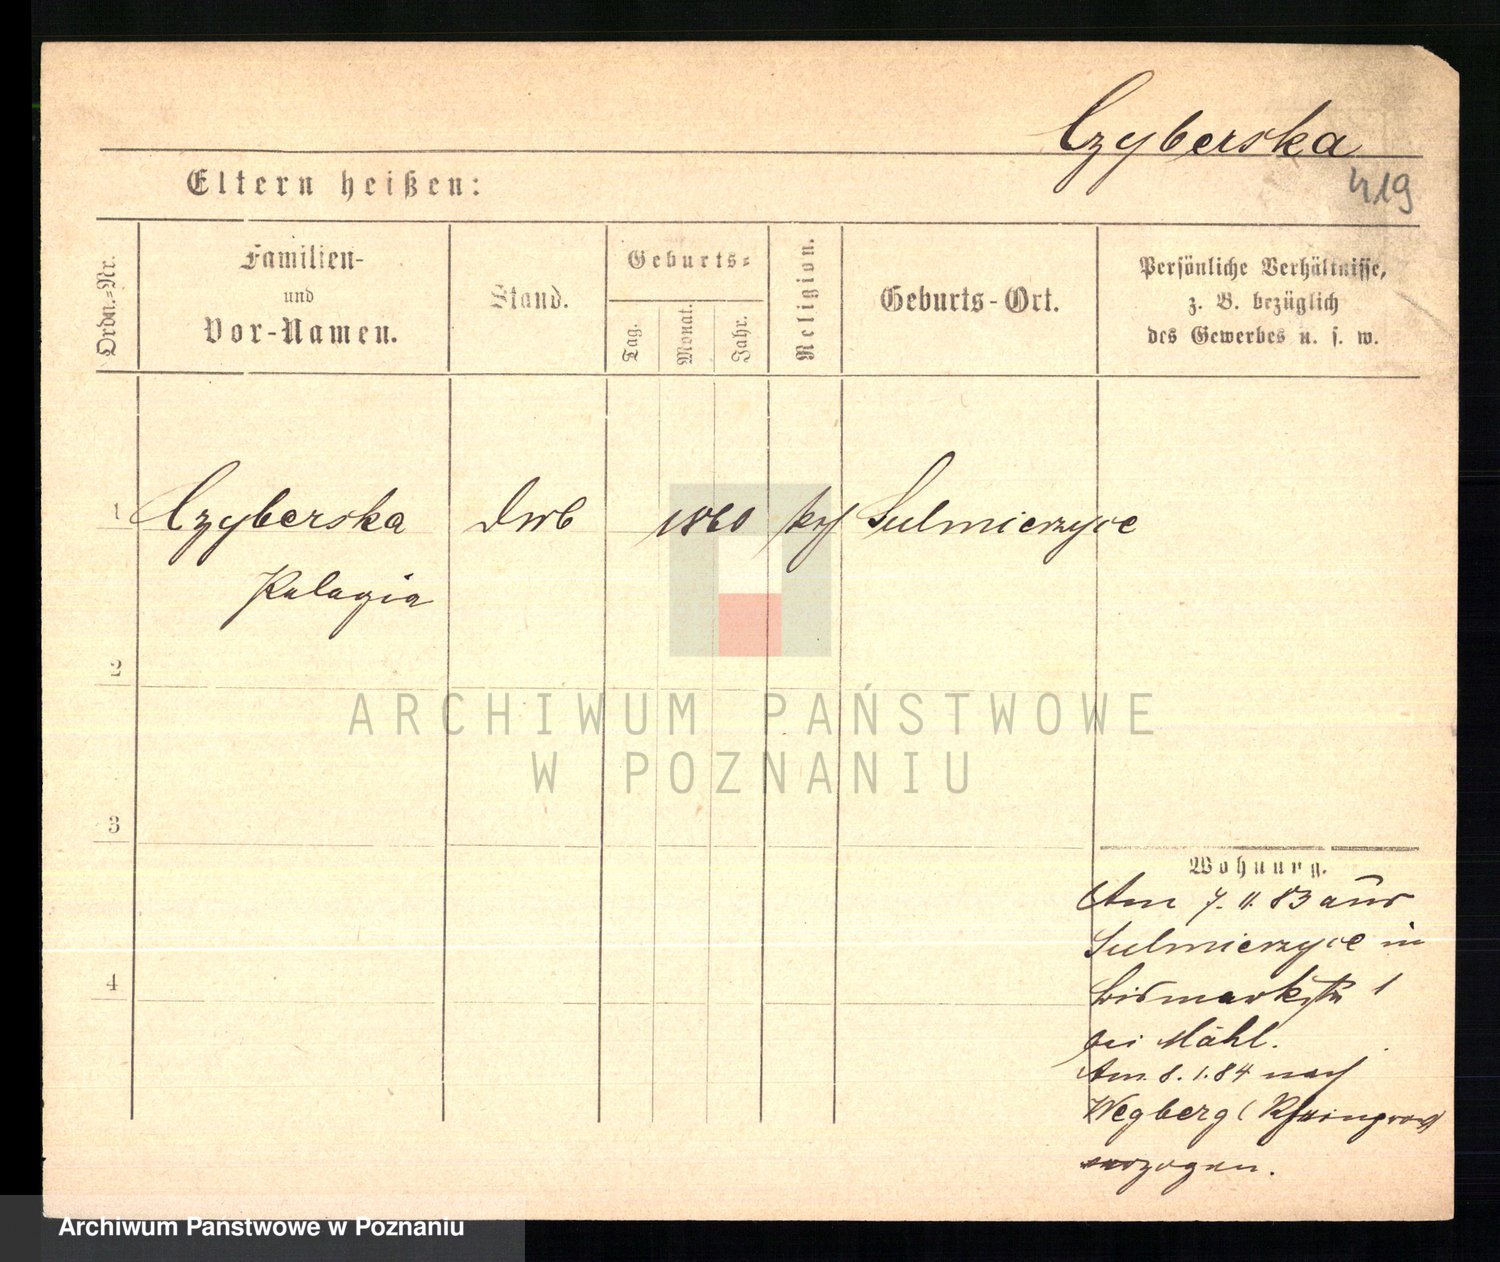 Czyberska
419
Eltern heißen:
Ordn.=Nr.
Familien-
und
Vor-Namen.
Stand.
Geburts=
Tag.
Monat.
Jahr.
Religion.
Geburts-Ort.
Persönliche Verhältnisse,
z. B. bezüglich
des Gewerbes u. s. w.
1 Czyberska 1860 Sulmierzyce
Pelagia
2
ARCHIWUM PAŃSTWOWE
W POZNANIU
3
Wohnung.
Am 7. 11. 83 aus
Sulmierzyce in
Bismarkstr 1
bei Mähl.
Am 8. 1. 84 nach
4
Wegberg (Rheinprov)
verzogen.
Archiwum Panstwowe w Poznaniu